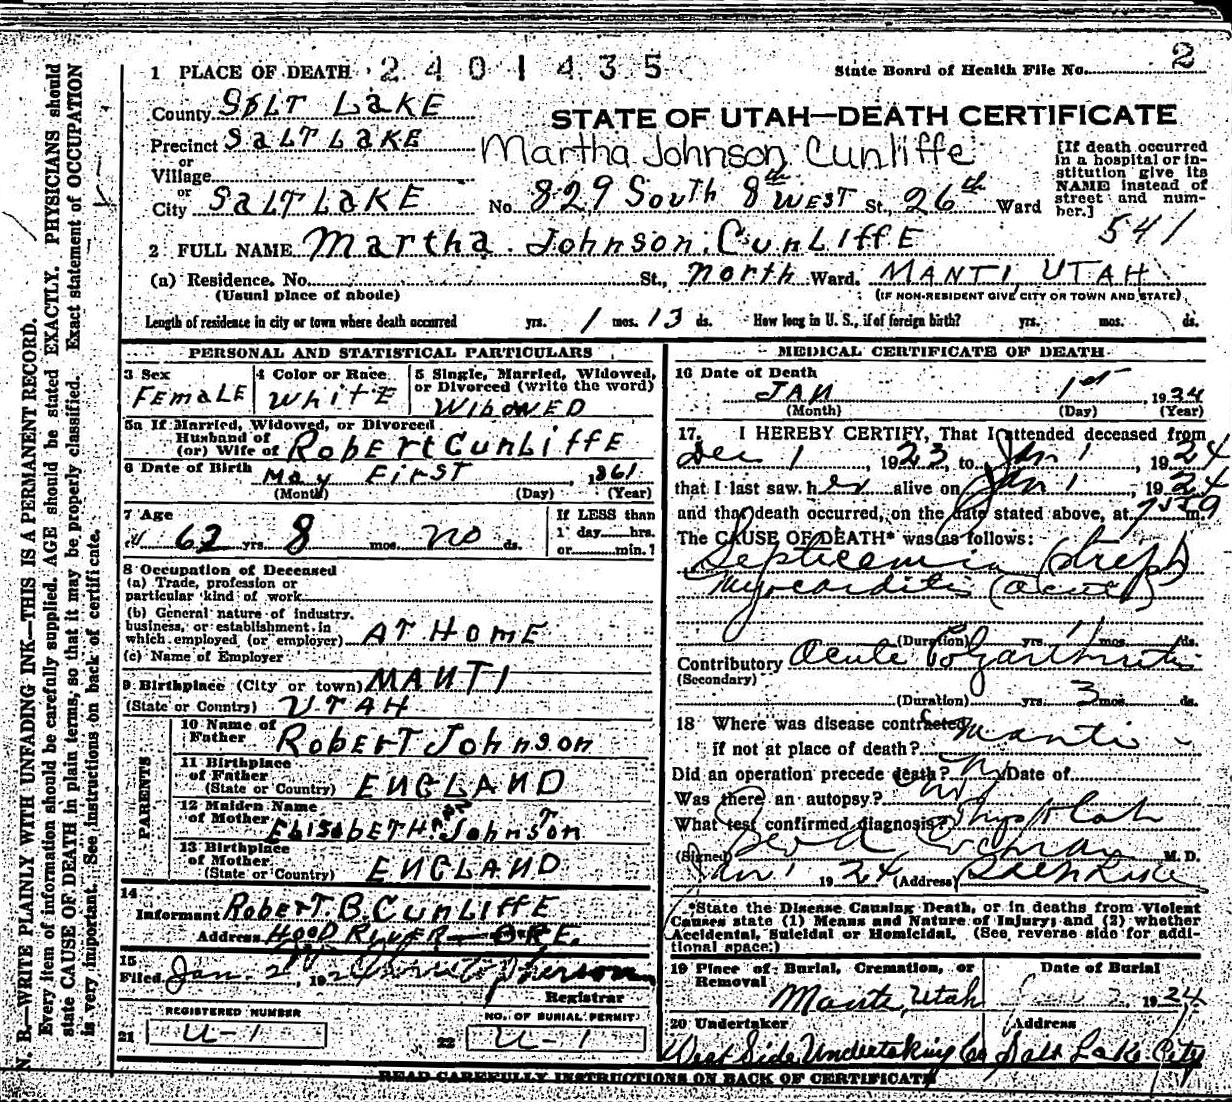 1 PLACE OF DEATH 2401435
State Board of Health File No. 2
County SALT LAKE
STATE OF UTAH—DEATH CERTIFICATE
Precinct SALT LAKE
Martha Johnson Cunliffe
or
Village
or
City SALT LAKE No. 829 South 8th WEST St., 26th Ward
[If death occurred in a hospital or institution give its NAME instead of street and number.]
541
2 FULL NAME Martha Johnson CUNLIFFE
(a) Residence. No. St., North Ward. MANTI, UTAH
(Usual place of abode) (IF NON-RESIDENT GIVE CITY OR TOWN AND STATE)
Length of residence in city or town where death occurred yrs. 1 mos. 13 ds. How long in U. S., if of foreign birth? yrs. mos. ds.
PERSONAL AND STATISTICAL PARTICULARS
3 Sex FEMALE
4 Color or Race WhiTE
5 Single, Married, Widowed, or Divorced (write the word) WIDOWED
5a If Married, Widowed, or Divorced
Husband of
(or) Wife of RoberT CUNLIFFE
6 Date of Birth May First, 1861
(Month) (Day) (Year)
7 Age 62 yrs. 8 mos. no ds.
If LESS than 1 day hrs. or min.?
8 Occupation of Deceased
(a) Trade, profession or
particular kind of work
(b) General nature of industry,
business, or establishment in
which employed (or employer) AT HOME
(c) Name of Employer
9 Birthplace (City or town) MANTI
(State or Country) UTAH
PARENTS
10 Name of
Father RobERT Johnson
11 Birthplace
of Father
(State or Country) ENGLAND
12 Maiden Name
of Mother ElisabETH Johnston
13 Birthplace
of Mother
(State or Country) ENGLAND
14
Informant RobERT. B. CUNLIFFE
Address HOOD RIVER — ORE.
15
Filed Jan. 2, 1924
Registrar
REGISTERED NUMBER
21 U-1
NO. OF BURIAL PERMIT
22 U-1
MEDICAL CERTIFICATE OF DEATH
16 Date of Death
JAN 1st, 1924
(Month) (Day) (Year)
17. I HEREBY CERTIFY, That I attended deceased from
Dec 1, 1923, to Jan 1, 1924
that I last saw her alive on Jan 1, 1924
and that death occurred, on the date stated above, at m.
The CAUSE OF DEATH* was as follows:
Septicemia (Strep)
Myocarditis (acute)
(Duration) yrs. mos. ds.
Contributory Acute
(Secondary)
(Duration) yrs. 3 mos. ds.
18 Where was disease contracted
if not at place of death? Manti
Did an operation precede death? Date of
Was there an autopsy?
What test confirmed diagnosis?
(Signed) M. D.
Jan 1 1924 (Address) Salt Lake
*State the Disease Causing Death, or in deaths from Violent
Causes state (1) Means and Nature of Injury; and (2) whether
Accidental, Suicidal or Homicidal. (See reverse side for addi-
tional space.)
19 Place of Burial, Cremation, or
Removal
Manti, Utah
Date of Burial
Jan 2, 1924
20 Undertaker Address
West Side Undertaking Co Salt Lake City
READ CAREFULLY INSTRUCTIONS ON BACK OF CERTIFICATE
N. B.—WRITE PLAINLY WITH UNFADING INK—THIS IS A PERMANENT RECORD.
Every item of information should be carefully supplied. AGE should be stated EXACTLY. PHYSICIANS should
state CAUSE OF DEATH in plain terms, so that it may be properly classified. Exact statement of OCCUPATION
is very important. See instructions on back of certificate.